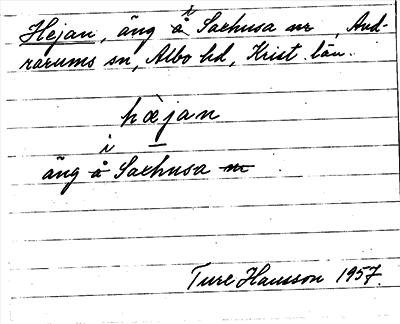 Hejan, äng i Saxhusa nr, And-
rarums sn, Albo hd, Krist. län.
hæjan
äng i Saxhusa
Ture Hansson 1957.